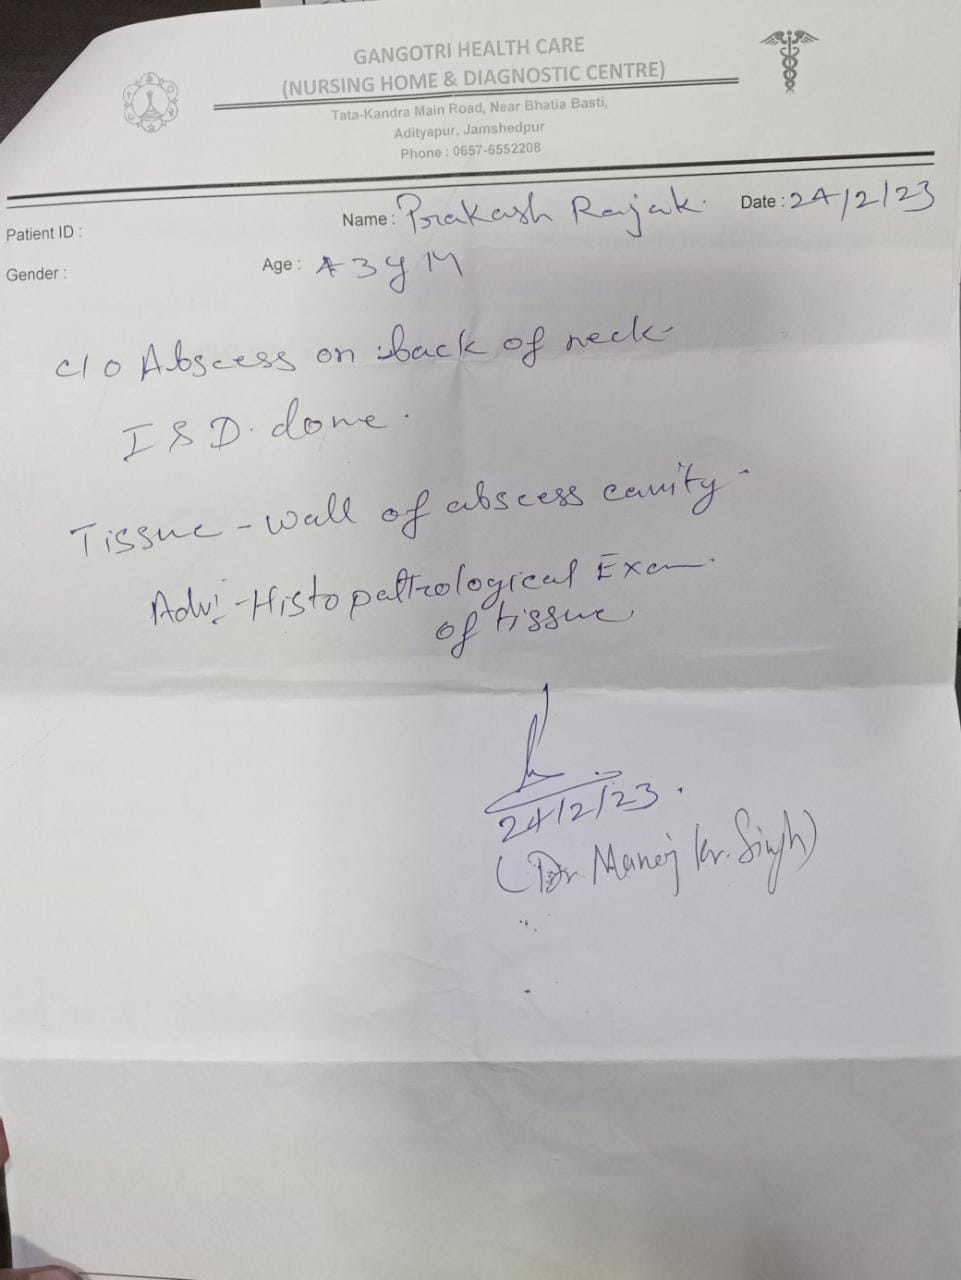 GANGOTRI HEALTH CARE
(NURSING HOME & DIAGNOSTIC CENTRE)
Tata-Kandra Main Road, Near Bhatia Basti,
Adityapur, Jamshedpur
Phone : 0657-6552208
Patient ID : Name : Prakash Rajak. Date : 24/2/23
Gender : Age : 43 y M
c/o Abscess on back of neck
I & D. done.
Tissue - wall of abscess cavity -
Adv:- Histopathological Exam.
of tissue
24/2/23.
(Dr Manoj Kr. Singh)